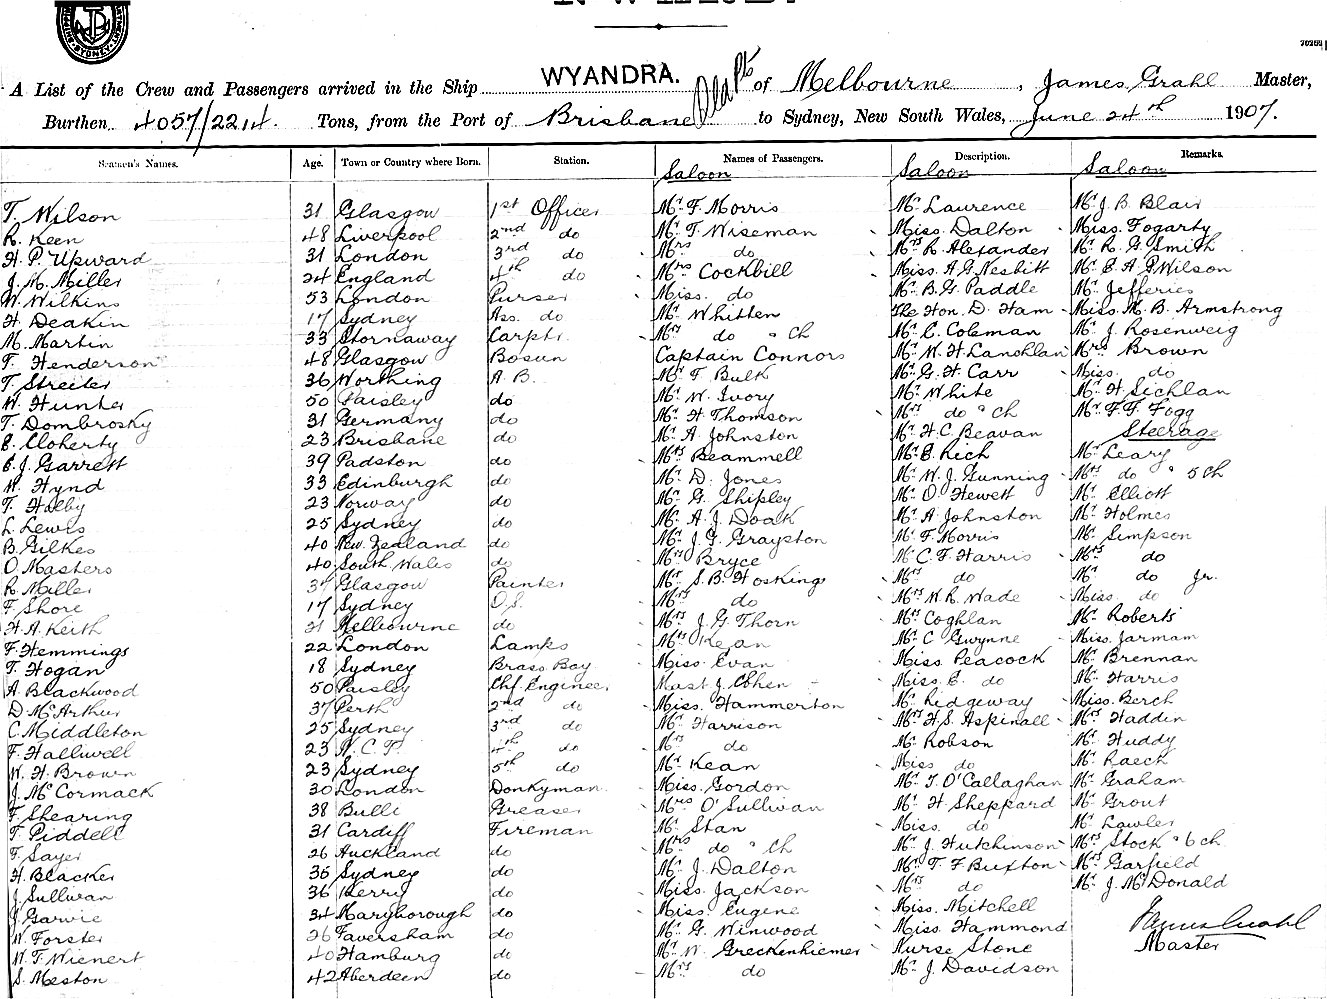 SYDNEY
70252
A List of the Crew and Passengers arrived in the Ship WYANDRA. of Melbourne, James Grahl Master,
Burthen 4057/2214. Tons, from the Port of Brisbane to Sydney, New South Wales, June 24th 1907.
Seamen's Names. Age. Town or Country where Born. Station. Names of Passengers. Description. Remarks.
Saloon Saloon Saloon
T. Wilson 31 Glasgow 1st Officer Mr. F. Morris Mr. Laurence Mr. J. B. Blair
R. Keen 48 Liverpool 2nd do Mr. T. Wiseman Miss. Dalton Miss. Fogarty
H. P. Upward 31 London 3rd do Mrs do Mrs R. Alexander Mr. R. G. Smith
J. M. Miller 24 England 4th do Mrs Cockbill Miss. A. G. Nesbitt Mr. E. A. P. Wilson
W. Wilkins 53 London Purser Miss. do Mr. B. G. Paddle Mr. Jefferies
H. Deakin 17 Sydney Ass. do Mr. Whitten The Hon. D. Ham Miss. M. B. Armstrong
M. Martin 33 Stornaway Carptr. Mrs do " ch Mr. C. Coleman Mr. J. Rosenweig
T. Henderson 48 Glasgow Bosun Captain Connors Mr. W. H. Lanchlan Mrs Brown
T. Streeter 36 Worthing A.B. Mr. T. Bulk Mr. G. H. Carr Miss. do
W. Hunter 50 Paisley do Mr. W. Ivory Mr. White Mr. H. Sichlan
T. Dombrosky 31 Germany do Mr. H. Thomson Mrs do " ch Mr. F. F. Fogg
E. Cloherty 23 Brisbane do Mr. A. Johnston Mr. H. C. Beavan Steerage
E. J. Garrett 39 Padston do Mrs Beammell Mr. E. Rich Mr. Leary
W. Hynd 33 Edinburgh do Mr. D. Jones Mr. W. J. Gunning Mrs do " 5 ch
T. Halby 23 Norway do Mr. G. Shipley Mr. O. Hewett Mr. Elliott
L. Lewis 25 Sydney do Mr. A. J. Doak Mr. A. Johnston Mr. Holmes
B. Gilkes 40 New Zealand do Mr. J. G. Grayston Mr. F. Morris Mr. Simpson
O. Masters 40 South Wales do Mrs Bryce Mr. C. F. Harris Mrs do
R. Miller 37 Glasgow Painter Mr. S. B. Hoskings Mrs do Mr. do Jr.
F. Shore 17 Sydney O.S. Mrs do Mrs W. R. Wade Miss. do
H. A. Keith 21 Melbourne do Mrs J. G. Thorn Mrs Coghlan Mr. Roberts
F. Hemmings 22 London Lamps Mrs Kean Mr. C. Gwynne Miss. Jarmam
T. Hogan 18 Sydney Brass Boy Miss. Evan Miss. Peacock Mr. Brennan
A. Blackwood 50 Paisley Chf. Engineer Mast J. Cohen Miss. E. do Mr. Harris
D. McArthur 37 Perth 2nd do Miss. Hammerton Mr. Ridgeway Miss. Berch
C. Middleton 25 Sydney 3rd do Mr. Harrison Mrs H. S. Aspinall Mrs Haddin
F. Halliwell 23 N.C.T. 4th do Mrs do Mr. Robson Mr. Huddy
W. H. Brown 23 Sydney 5th do Mr. Kean Miss do Mr. Raech
J. McCormack 30 London Donkyman Miss. Gordon Mr. T. O'Callaghan Mr. Graham
F. Shearing 38 Bulli Greaser Mrs O'Sullivan Mr. H. Sheppard Mr. Grout
T. Piddell 31 Cardiff Fireman Mr. Stan Miss. do Mr. Lawler
F. Sayer 26 Auckland do Mrs do " ch Mr. J. Hutchinson Mrs Stock " 6 ch
H. Blacker 35 Sydney do Mr. J. Dalton Mr. T. F. Buxton Mrs Garfield
J. Sullivan 36 Kerry do Miss. Jackson Mrs do Mr. J. McDonald
J. Garvie 34 Maryborough do Miss. Eugene Miss. Mitchell
W. Forster 26 Faversham do Mr. G. Winwood Miss. Hammond James Grahl
W. T. Wienert 40 Hamburg do Mr. W. Greckenhiemer Nurse Stone Master
S. Meston 42 Aberdeen do Mrs do Mr. J. Davidson